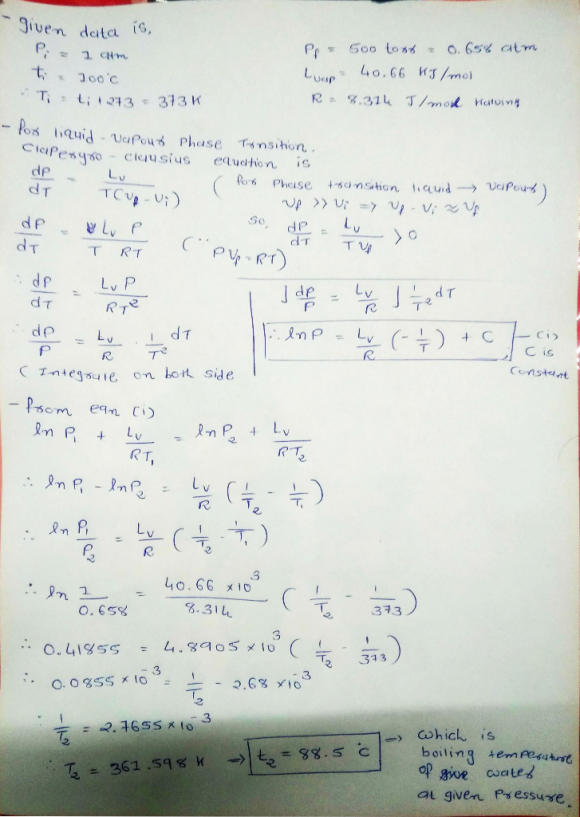 - given data is,
Pi = 1 atm
ti = 100°C
∴ Ti = ti + 273 = 373 K
Pf = 500 torr = 0.658 atm
Lvap = 40.66 KJ/mol
R = 8.314 J/mol Kalving
- for liquid-vapour phase Trnsition.
Clapeyro-clausius equation is
dP/dT = Lv / T(Vf - Vi)
( for phase transition liquid → vapour)
Vf >> Vi => Vf - Vi ≈ Vf
So, dP/dT = Lv / TVf > 0
dP/dT = Lv P / T RT ( ∵ PVf = RT)
∴ dP/dT = Lv P / RT²
∴ dP/P = Lv/R · 1/T² dT
( Integrate on both side
∫ dP/P = Lv/R ∫ 1/T² dT
∴ ln P = Lv/R (-1/T) + C, — (i)
C is
constant
- from eqn (i)
ln P₁ + Lv/RT₁ = ln P₂ + Lv/RT₂
∴ ln P₁ - ln P₂ = Lv/R ( 1/T₂ - 1/T₁ )
∴ ln P₁/P₂ = Lv/R ( 1/T₂ - 1/T₁ )
∴ ln 1/0.658 = 40.66 × 10³ / 8.314 ( 1/T₂ - 1/373 )
∴ 0.41855 = 4.8905 × 10³ ( 1/T₂ - 1/373 )
∴ 0.0855 × 10⁻³ = 1/T₂ - 2.68 × 10⁻³
∴ 1/T₂ = 2.7655 × 10⁻³
∴ T₂ = 361.598 K → t₂ = 88.5 °C
=> which is
boiling temperature
of give water
at given Pressure.